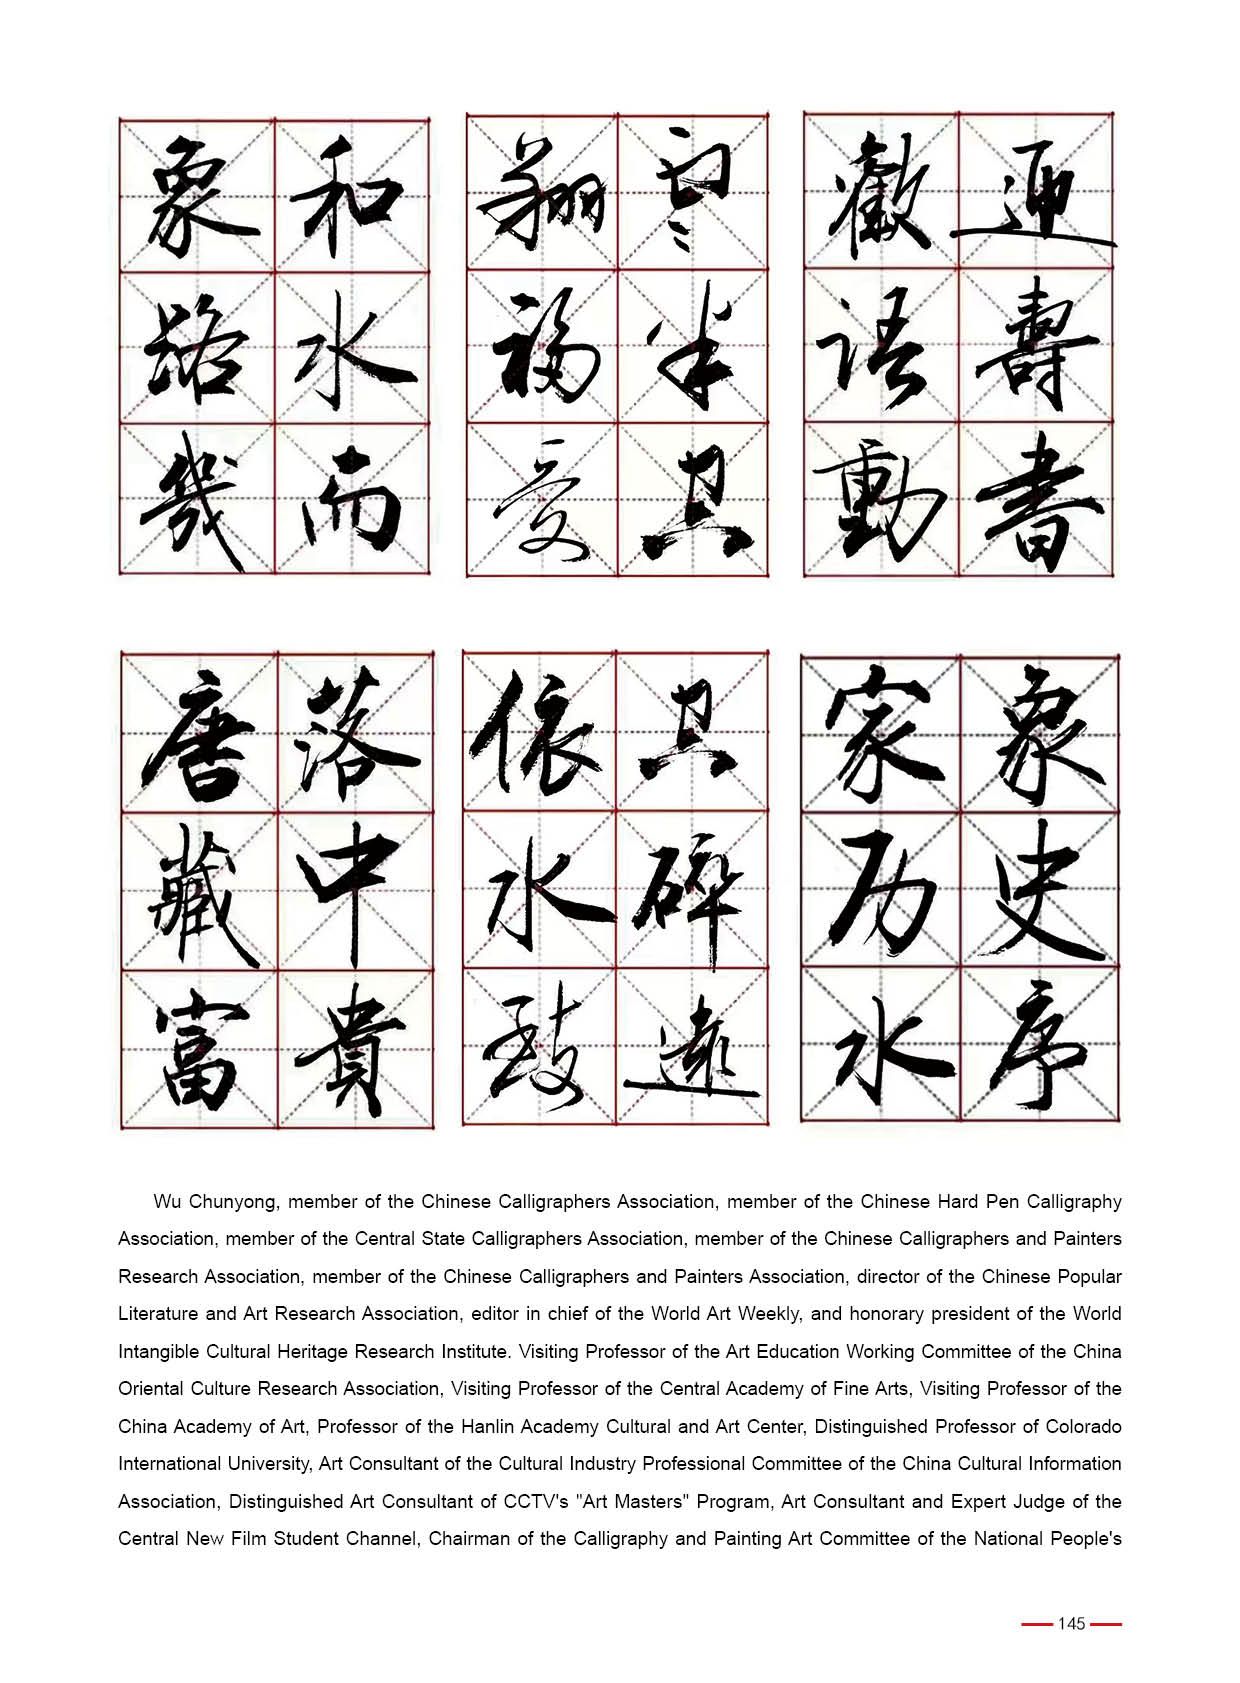 象和
路水
幾而
翔雲
福半
愛具
歡迎
語壽
動書
唐落
藏中
富貴
依具
水碎
致遠
家象
历史
水序
Wu Chunyong, member of the Chinese Calligraphers Association, member of the Chinese Hard Pen Calligraphy
Association, member of the Central State Calligraphers Association, member of the Chinese Calligraphers and Painters
Research Association, member of the Chinese Calligraphers and Painters Association, director of the Chinese Popular
Literature and Art Research Association, editor in chief of the World Art Weekly, and honorary president of the World
Intangible Cultural Heritage Research Institute. Visiting Professor of the Art Education Working Committee of the China
Oriental Culture Research Association, Visiting Professor of the Central Academy of Fine Arts, Visiting Professor of the
China Academy of Art, Professor of the Hanlin Academy Cultural and Art Center, Distinguished Professor of Colorado
International University, Art Consultant of the Cultural Industry Professional Committee of the China Cultural Information
Association, Distinguished Art Consultant of CCTV's "Art Masters" Program, Art Consultant and Expert Judge of the
Central New Film Student Channel, Chairman of the Calligraphy and Painting Art Committee of the National People's
145